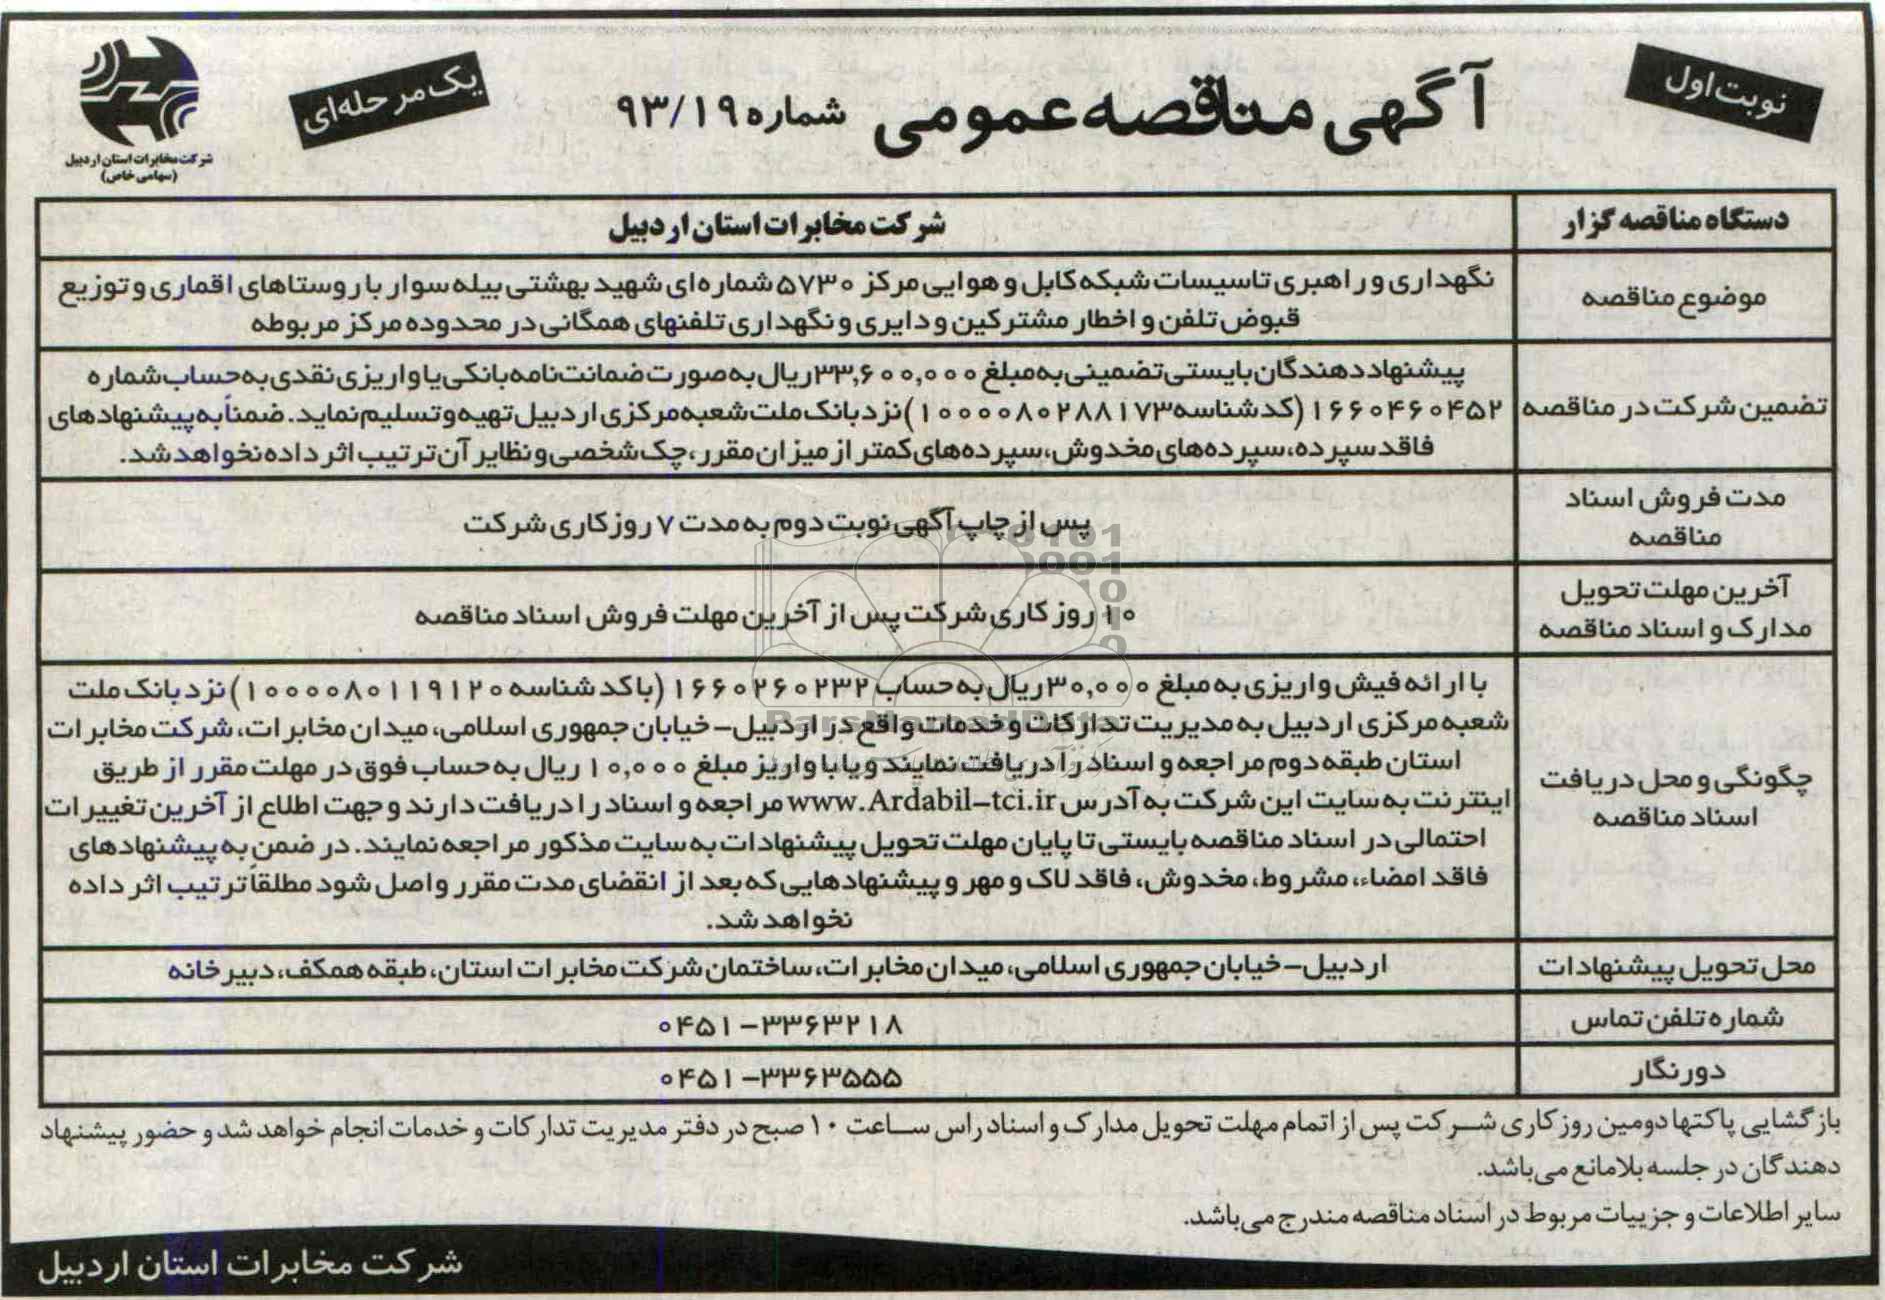 نوبت اول
آگهی مناقصه عمومی شماره ۹۳/۱۹
یک مرحله‌ای
شرکت مخابرات استان اردبیل
(سهامی خاص)
دستگاه مناقصه گزار
شرکت مخابرات استان اردبیل
موضوع مناقصه
نگهداری و راهبری تاسیسات شبکه کابل و هوایی مرکز ۵۷۳۰ شماره‌ای شهید بهشتی بیله سوار با روستاهای اقماری و توزیع
قبوض تلفن و اخطار مشترکین و دایری و نگهداری تلفنهای همگانی در محدوده مرکز مربوطه
تضمین شرکت در مناقصه
پیشنهاد دهندگان بایستی تضمینی به مبلغ ۳۳,۶۰۰,۰۰۰ ریال به صورت ضمانت نامه بانکی یا واریزی نقدی به حساب شماره
۱۶۶۰۴۶۰۴۵۲ (کد شناسه ۱۰۰۰۰۸۰۲۸۸۱۷۳) نزد بانک ملت شعبه مرکزی اردبیل تهیه و تسلیم نماید. ضمناً به پیشنهادهای
فاقد سپرده، سپرده‌های مخدوش، سپرده‌های کمتر از میزان مقرر، چک شخصی و نظایر آن ترتیب اثر داده نخواهد شد.
مدت فروش اسناد
مناقصه
پس از چاپ آگهی نوبت دوم به مدت ۷ روز کاری شرکت
آخرین مهلت تحویل
مدارک و اسناد مناقصه
۱۰ روز کاری شرکت پس از آخرین مهلت فروش اسناد مناقصه
چگونگی و محل دریافت
اسناد مناقصه
با ارائه فیش واریزی به مبلغ ۳۰,۰۰۰ ریال به حساب ۱۶۶۰۲۶۰۲۳۲ (با کد شناسه ۱۰۰۰۰۸۰۱۱۹۱۲۰) نزد بانک ملت
شعبه مرکزی اردبیل به مدیریت تدارکات و خدمات واقع در اردبیل – خیابان جمهوری اسلامی، میدان مخابرات، شرکت مخابرات
استان طبقه دوم مراجعه و اسناد را دریافت نمایند و یا با واریز مبلغ ۱۰,۰۰۰ ریال به حساب فوق در مهلت مقرر از طریق
اینترنت به سایت این شرکت به آدرس www.Ardabil-tci.ir مراجعه و اسناد را دریافت دارند و جهت اطلاع از آخرین تغییرات
احتمالی در اسناد مناقصه بایستی تا پایان مهلت تحویل پیشنهادات به سایت مذکور مراجعه نمایند. در ضمن به پیشنهادهای
فاقد امضاء، مشروط، مخدوش، فاقد لاک و مهر و پیشنهادهایی که بعد از انقضای مدت مقرر واصل شود مطلقاً ترتیب اثر داده
نخواهد شد.
محل تحویل پیشنهادات
اردبیل – خیابان جمهوری اسلامی، میدان مخابرات، ساختمان شرکت مخابرات استان، طبقه همکف، دبیرخانه
شماره تلفن تماس
۰۴۵۱-۳۳۶۳۲۱۸
دورنگار
۰۴۵۱-۳۳۶۳۵۵۵
بازگشایی پاکتها دومین روز کاری شرکت پس از اتمام مهلت تحویل مدارک و اسناد راس ساعت ۱۰ صبح در دفتر مدیریت تدارکات و خدمات انجام خواهد شد و حضور پیشنهاد
دهندگان در جلسه بلامانع می‌باشد.
سایر اطلاعات و جزییات مربوط در اسناد مناقصه مندرج می‌باشد.
شرکت مخابرات استان اردبیل